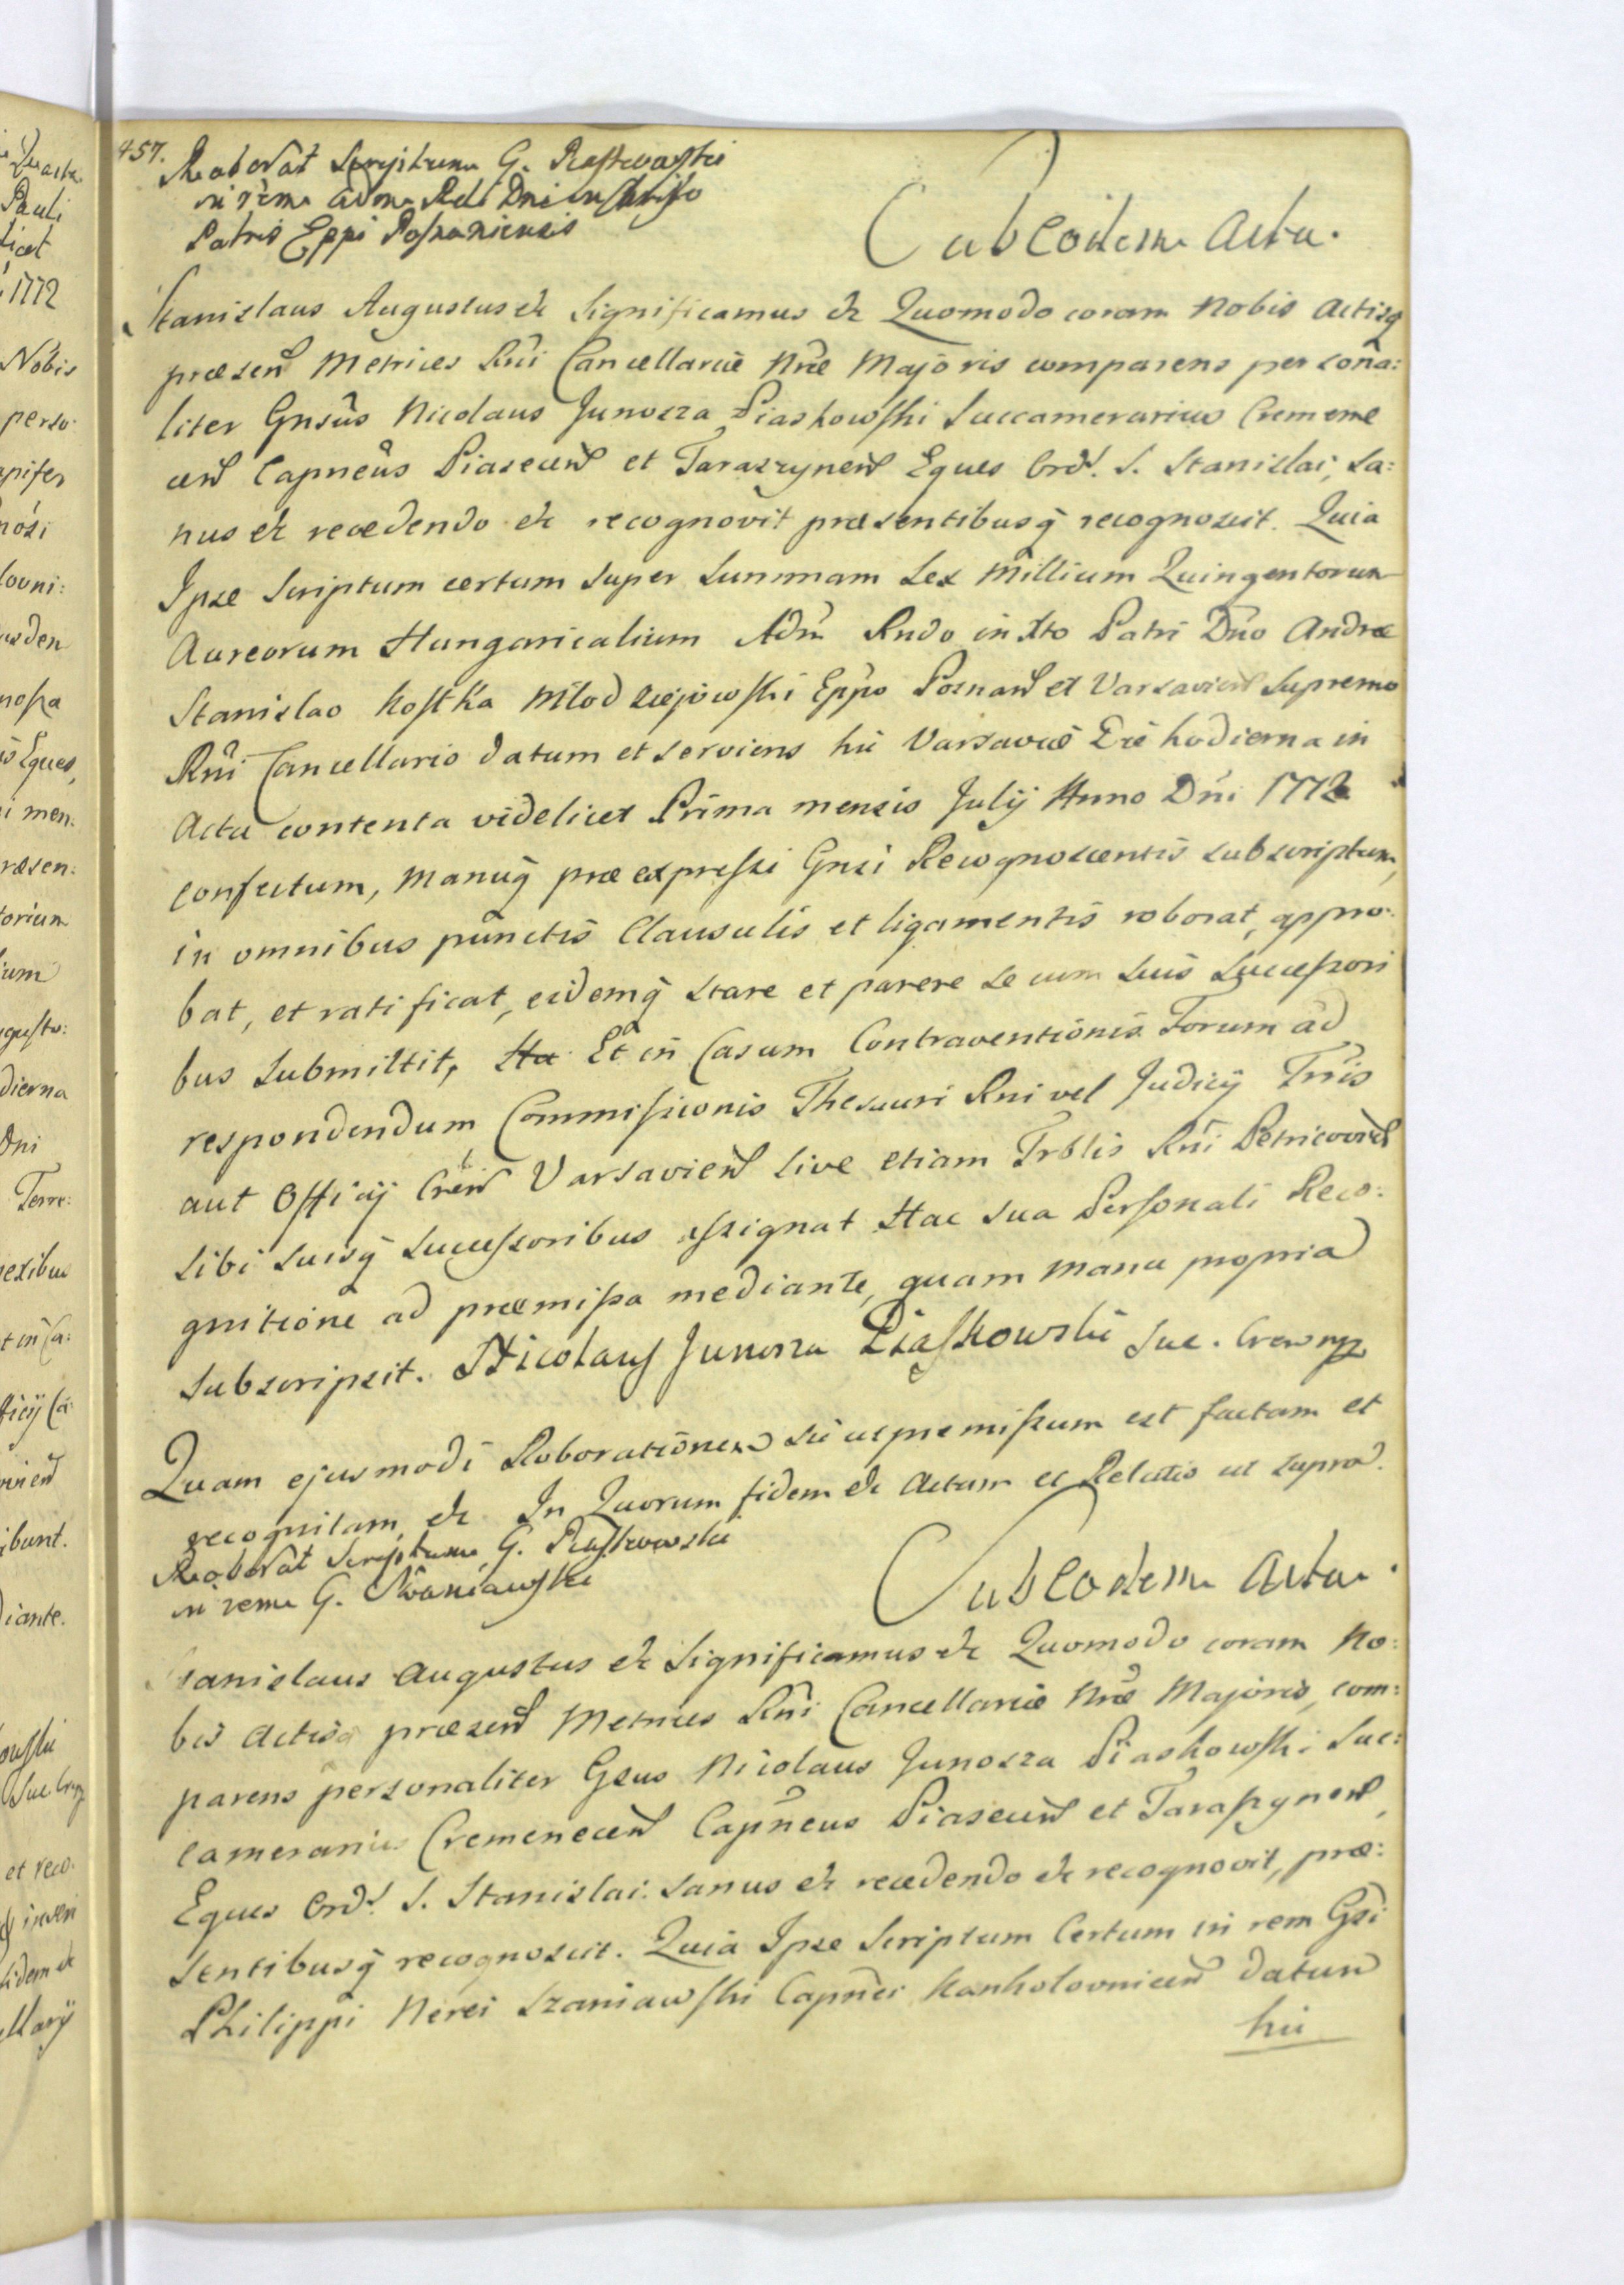 457.
Roborat Scriptum G. Piaskowski
in rem adm Rdi Dni in Christo
Patris Eppi Posnaniensis
Sub Eodem Actu.
Stanislaus Augustus &c Significamus &c Quomodo coram Nobis Actisq
præsen Metrices Rni Cancellariæ Nræ Majoris comparens persona:
liter Gnsus Nicolaus Junosza Piaskowski Succamerarius Cremene
cen Capneus Piasecen et Taraszynen Eques Ord. S. Stanislai, Sa:
nus &c recedendo &c recognovit præsentibusq recognoscit. Quia
Ipse Scriptum certum super Summam Sex Millium Quingentorum
Aureorum Hungaricalium Adm Rndo in Xto Patri Dno Andræ
Stanislao Kostka Młodziejowski Eppo Posnan et Varsavien Supremo
Rni Cancellario datum et serviens hic Varsaviæ Die hodierna in
Actu contenta videlicet Prima mensis Julij Anno Dni 1772
confectum, manuq præexpressi Gnsi Recognoscentis subscriptum,
in omnibus punctis Clausulis et ligamentis roborat, appro:
bat, et ratificat, eidemq stare et parere se cum suis Successori
bus submittit, Et in Casum Contraventionis Forum ad
respondendum Commissionis Thesauri Rni vel Judicij Trris
aut Officij Cren Varsavien sive etiam Trblis Rni Petricovien
sibi suisq successoribus assignat Hac sua Personali Reco:
gnitione ad præmissa mediante, quam manu propria
subscripsit. Nicolaus Junosza Piaskowski Suc. Crem mp
Quam ejusmodi Roborationem sic ut premissum est factam et
recognitam &c In Quorum fidem &c Actum et Relatio ut supra.
Roborat Scriptum G. Piaskowski
in rem G. Szaniawski
Sub Eodem Actu.
Stanislaus Augustus &c Significamus &c Quomodo coram No:
bis Actisq præsen Metrices Rni Cancellariæ Nræ Majoris, com:
parens personaliter Gsus Nicolaus Junosza Piaskowski Suc:
camerarius Cremenecen Capneus Piasecen et Taraszynen,
Eques Ord. S. Stanislai. Sanus &c recedendo &c recognovit, præ:
sentibusq recognoscit. Quia Ipse Scriptum Certum in rem Gsi
Philippi Nerei Szaniawski Capnei Kankolovnicen datum
hic